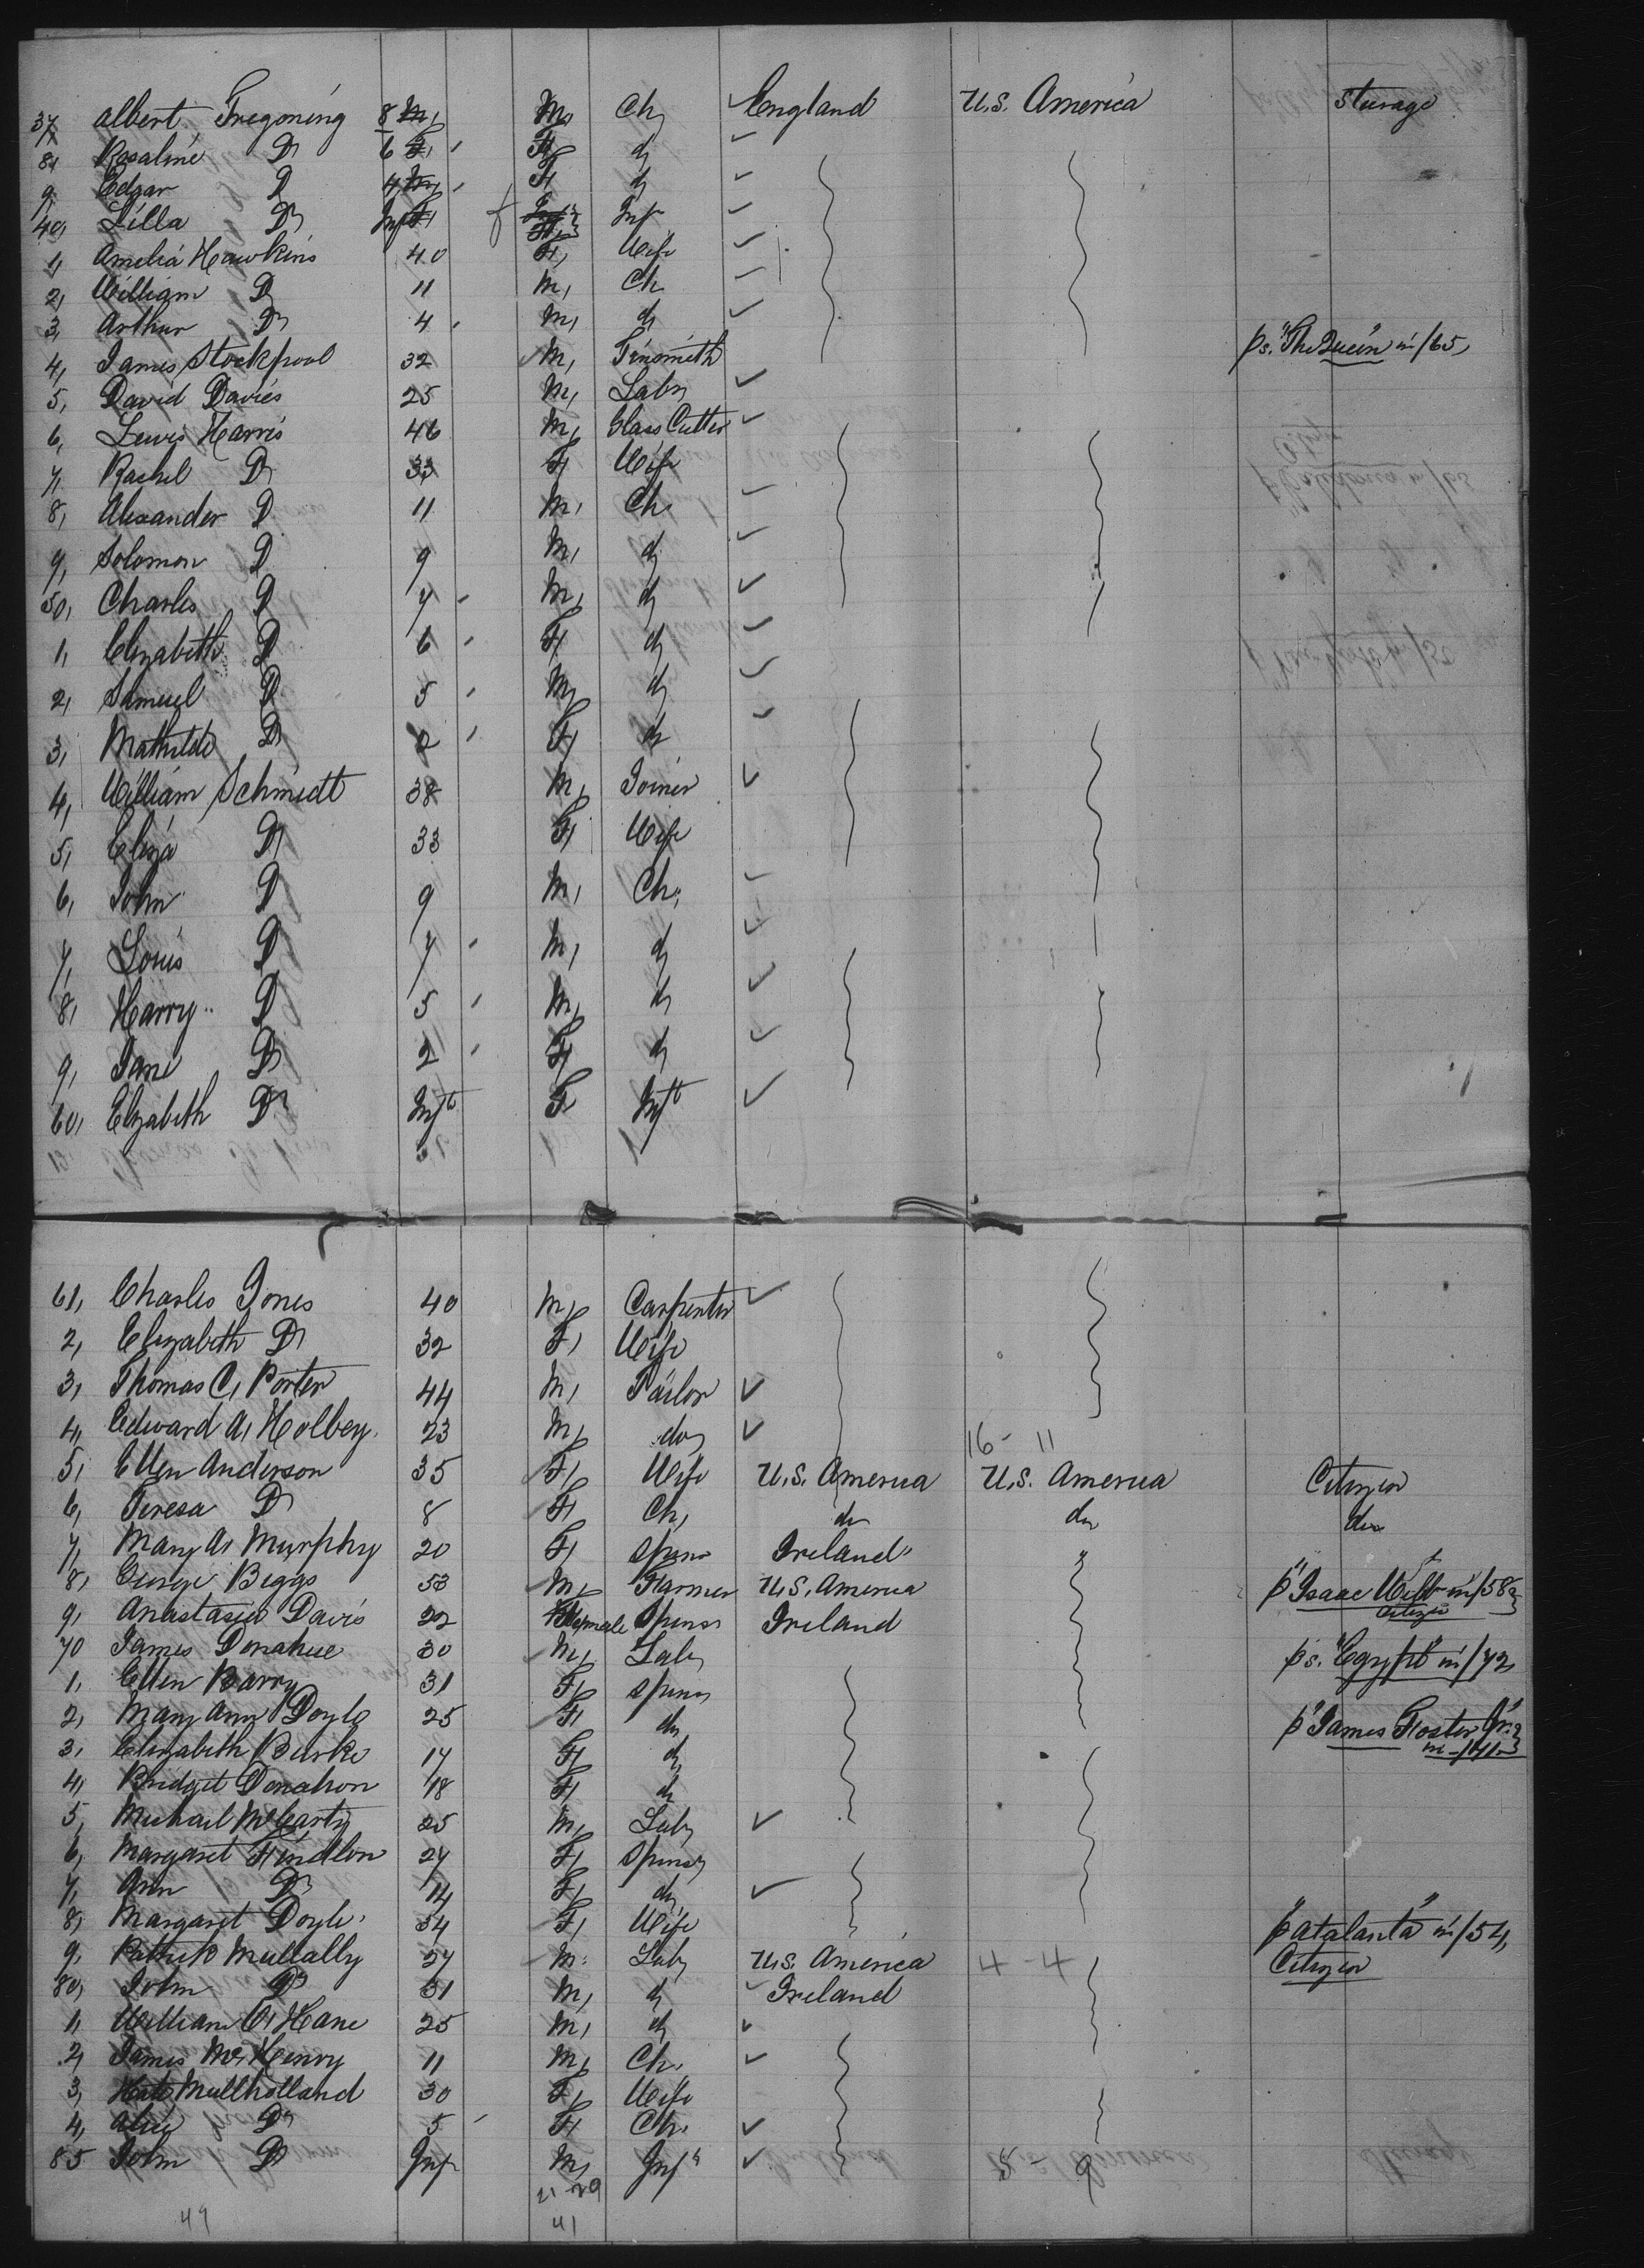 37 Albert Tregoning 8 M, Ch, England U.S. America Sterage
8, Rosaline Do 6 F, d,
9, Edgar D 4 F, d,
40, Lilla Do Inf F, Inf
1, Amelia Hawkins 40 F, Wife
2, William Do 11 M, Ch
3, Arthur Do 4 M, d,
4, James Stockpool 32 M, Tinsmith ps. "The Queen" in /65,
5, David Davies 25 M, Labr
6, Lewis Harris 46 M, Glass Cutter
7, Rachel Do 33 F, Wife
8, Alexander D 11 M, Ch,
9, Solomon D 9 M, d,
50, Charles D 7 M, d,
1, Elizabeth D 6 F, d,
2, Samuel D 5 M, d,
3, Mathilde Do 2 F, d,
4, William Schmidt 38 M, Joiner
5, Eliza Do 33 F, Wife
6, John D 9 M, Ch,
7, Louis D 7 M, d,
8, Harry D 5 M, d,
9, Jane Do 2 F, d,
60, Elizabeth Do Inft F Inft
61, Charles Jones 40 M, Carpenter
2, Elizabeth Do 32 F, Wife
3, Thomas C, Porter 44 M, Tailor
4, Edward A, Holbey 23 M, do,
16- 11
5, Ellen Anderson 35 F, Wife U.S. America U.S. America Citizen
6, Teresa Do 8 F, Ch, do do do
7, Mary A, Murphy 20 F, Spinr Ireland
8, George Biggs 53 M, Farmer U.S. America p "Isaac Webb" in /58, Citizen
9, Anastasia Davis 22 Female Spinr Ireland
70 James Donahue 30 M, Labr ps. "Egypt" in /72
1, Ellen Barry 31 F, Spinr
2, Mary Ann Doyle 25 F, do p "James Foster Jr."
3, Elizabeth Burke 17 F, d,
4, Bridget Donahon 18 F, d,
5, Michael McCarty 25 M, Labr
6, Margaret Findlon 27 F, Spinsr
7, Ann Do 14 F, d,
8, Margaret Doyle 34 F, Wife p "Atalanta" in /54,
9, Patrick Mullally 27 M. Labr U.S. America 4-4 Citizen
80, John Do 31 M, d, Ireland
1, William O, Hane 25 M, d,
2, James McHenry 11 M, Ch.
3, Kate Mullholland 30 F, Wife
4, Alice Do 5 F, Ch.
85 John Do Inf M, Inft
21-29
49 41